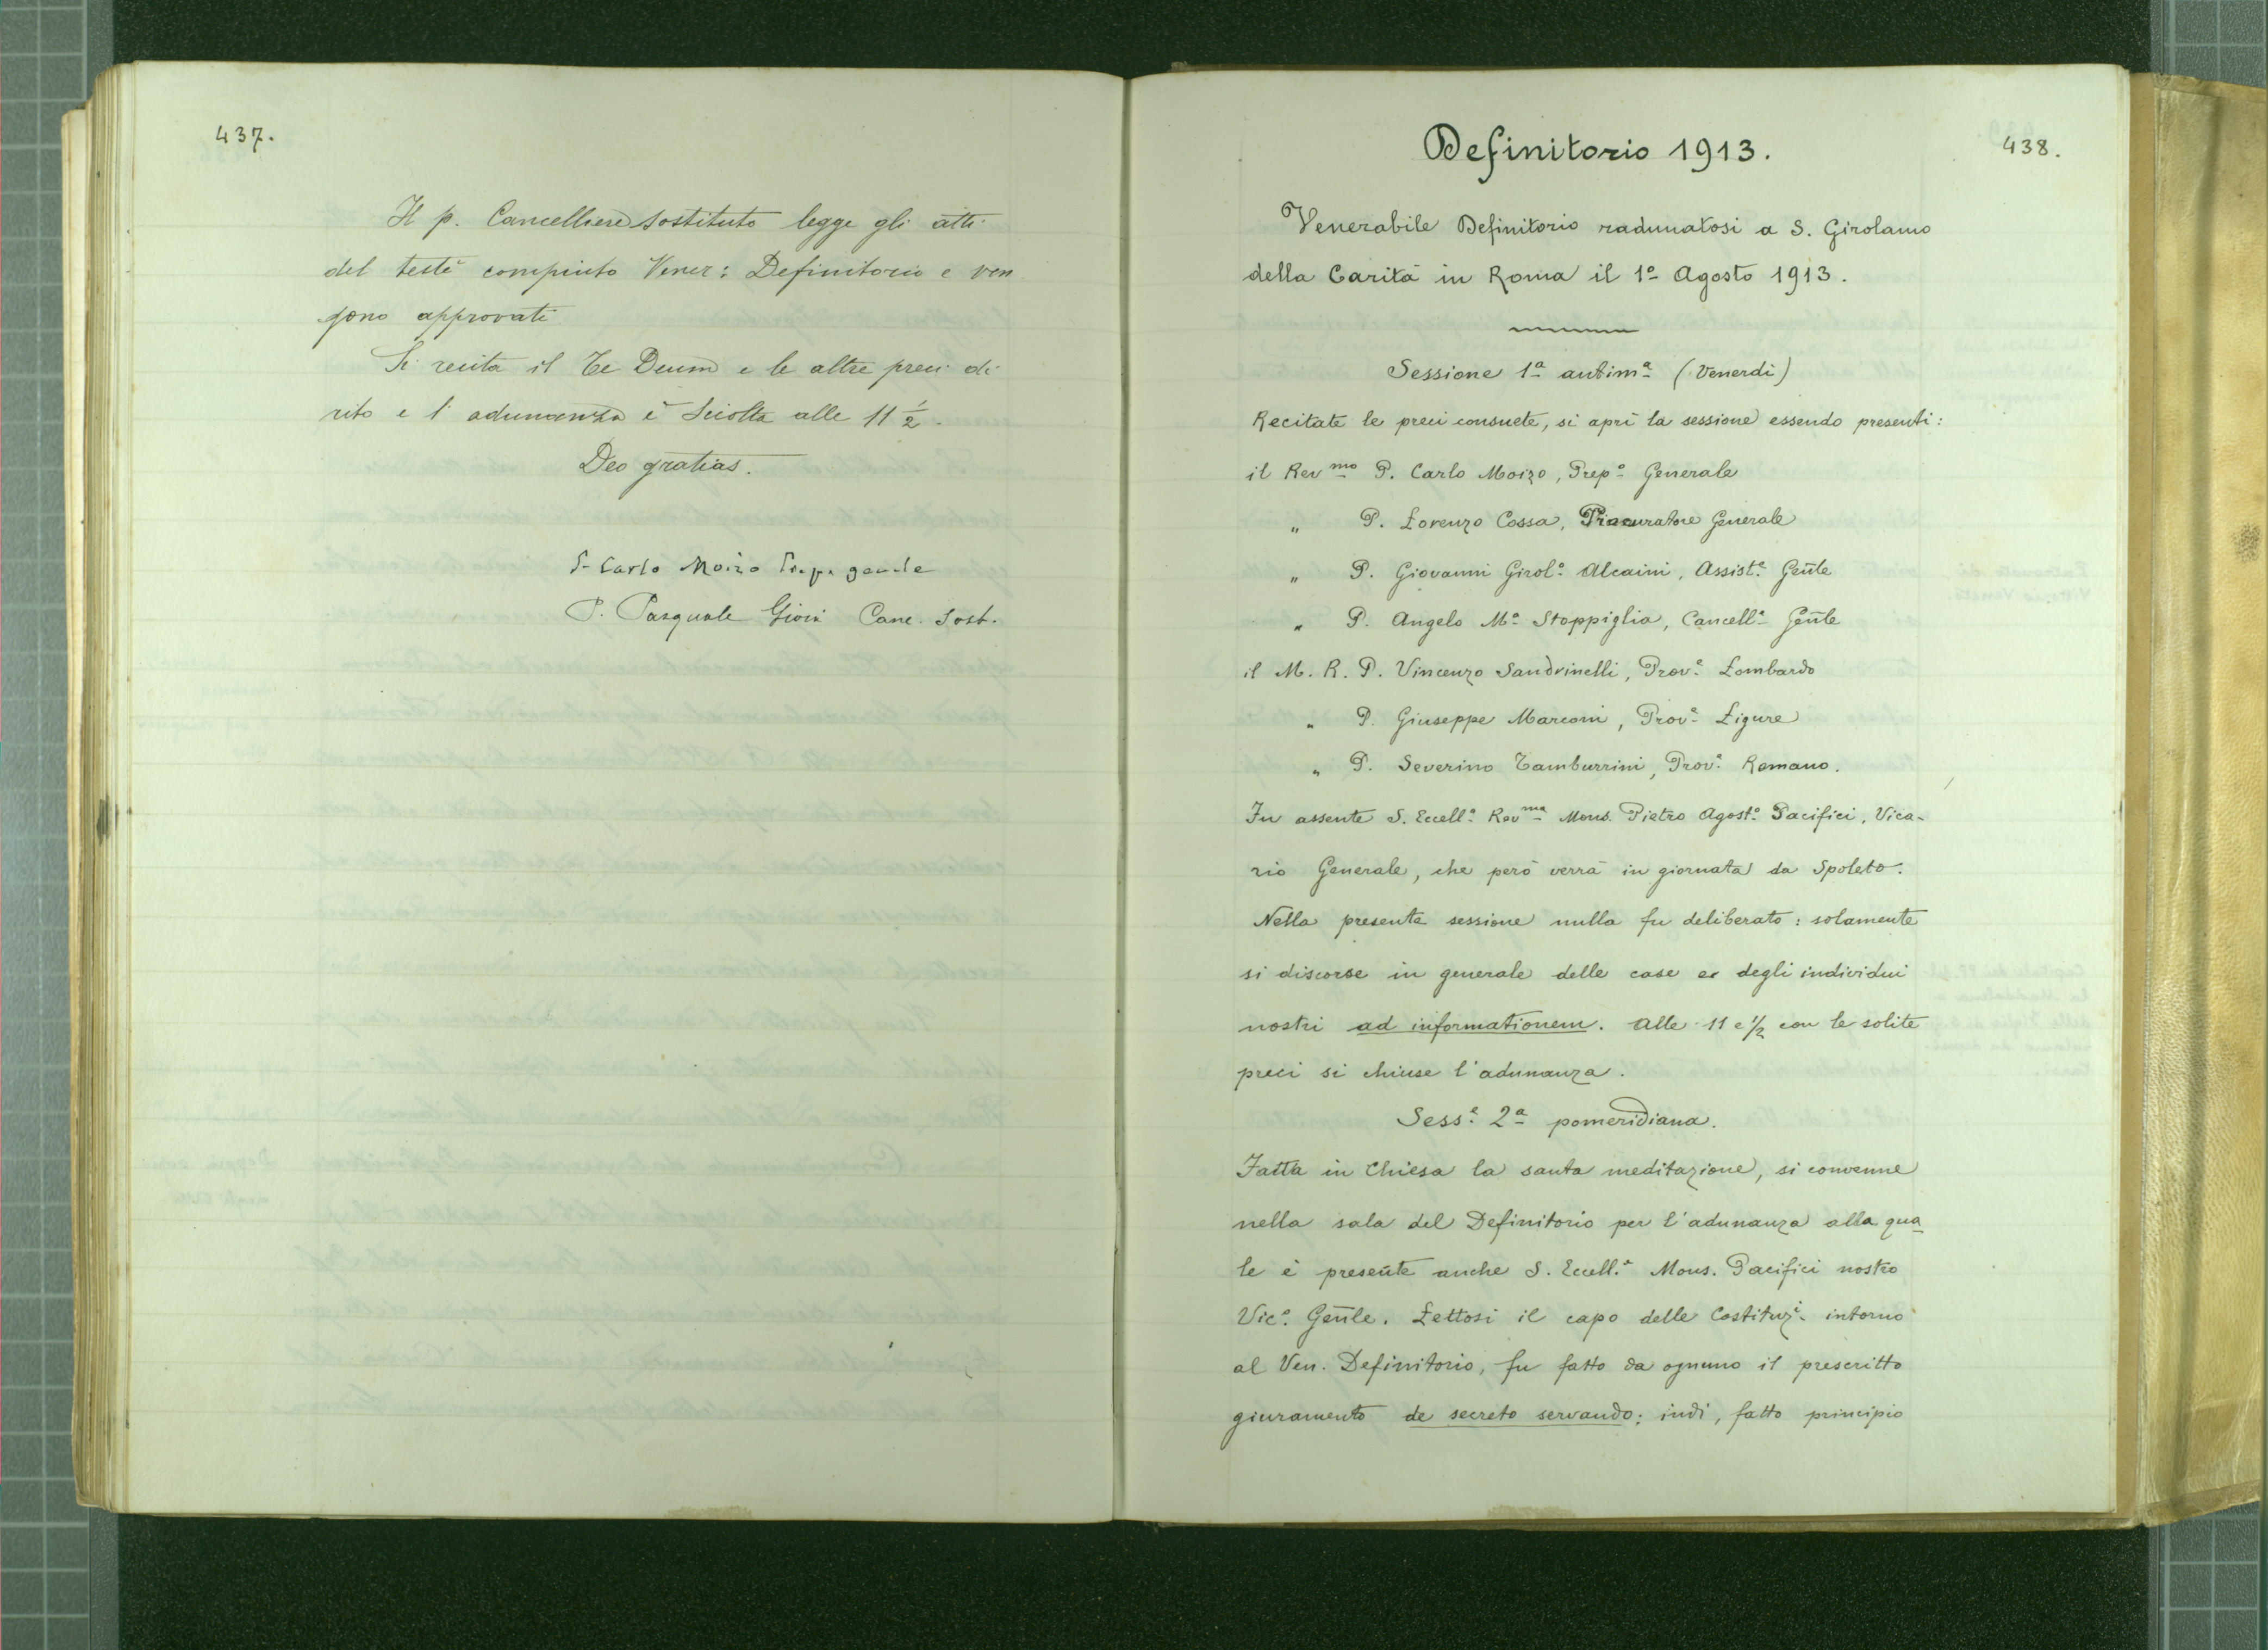 437.
Il p. Cancelliere sostituto legge gli atti
del testè compiuto Vener: Definitorio e ven
gono approvati
Si recita il Te Deum e le altre preci di
rito e l'adunanza è sciolta alle 11 1/2.
Deo gratias.
P. Carlo Moizo Prep. gen.le
P. Pasquale Gioia Canc. Sost.
438.
Definitorio 1913.
Venerabile Definitorio radunatosi a S. Girolamo
della Carità in Roma il 1º Agosto 1913.
Sessione 1ª antimª (Venerdì)
Recitate le preci consuete, si aprì la sessione essendo presenti:
il Revmo P. Carlo Moizo, Prepº Generale
" P. Lorenzo Cossa, Procuratore Generale
" P. Giovanni Girol.º Alcaini, Assist.e Gen̄le
" P. Angelo Mª Stoppiglia, Cancell.e Gen̄le
il M. R. P. Vincenzo Sandrinelli, Prov.e Lombardo
" P. Giuseppe Marconi, Prov.e Ligure
" P. Severino Tamburrini, Prov.e Romano.
Fu assente S. Eccell.ª Revma Mons. Pietro Agost.º Pacifici, Vica-
rio Generale, che però verrà in giornata da Spoleto.
Nella presente sessione nulla fu deliberato: solamente
si discorse in generale delle case e degli individui
nostri ad informationem. Alle 11 e 1/2 con le solite
preci si chiuse l'adunanza.
Sess.e 2ª pomeridiana.
Fatta in Chiesa la santa meditazione, si convenne
nella sala del Definitorio per l'adunanza alla qua
le è presente anche S. Eccell.ª Mons. Pacifici nostro
Vic.º Gen̄le. Lettosi il capo delle Costituz.i intorno
al Ven. Definitorio, fu fatto da ognuno il prescritto
giuramento de secreto servando; indi, fatto principio